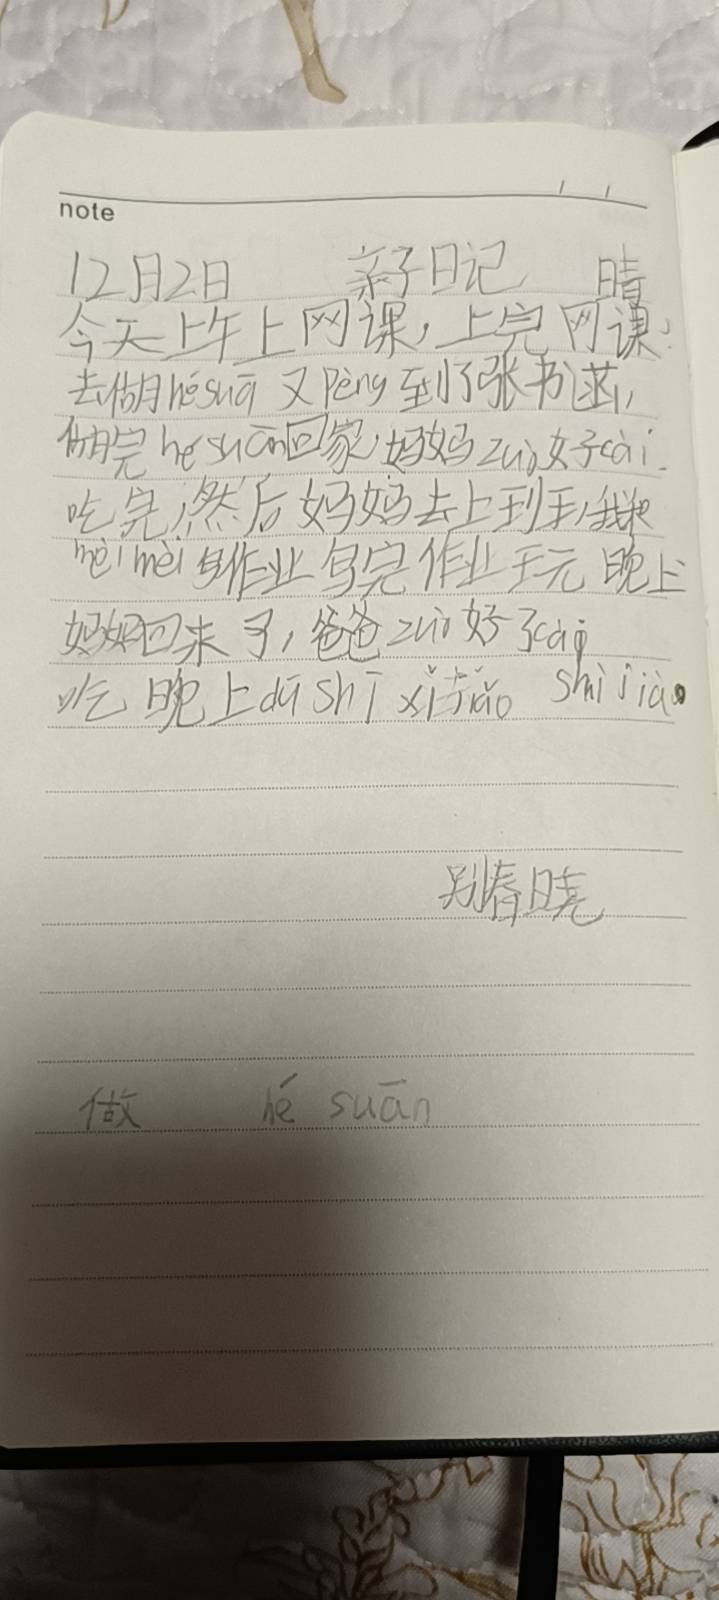 note
12月2日 亲子日记 晴
今天上午上网课，上完网课
去做hésuā又pèng到了张书涵，
做完hesuān回家，妈妈zuò好了cài.
吃完，然后妈妈去上到王，我和
mèimèi写作业写完作业王元晚上
妈妈回来了，爸爸zuò好了cài
吃晚上dū shī xǐjiǎo shuìjiào。
别春晓
做 hé suān